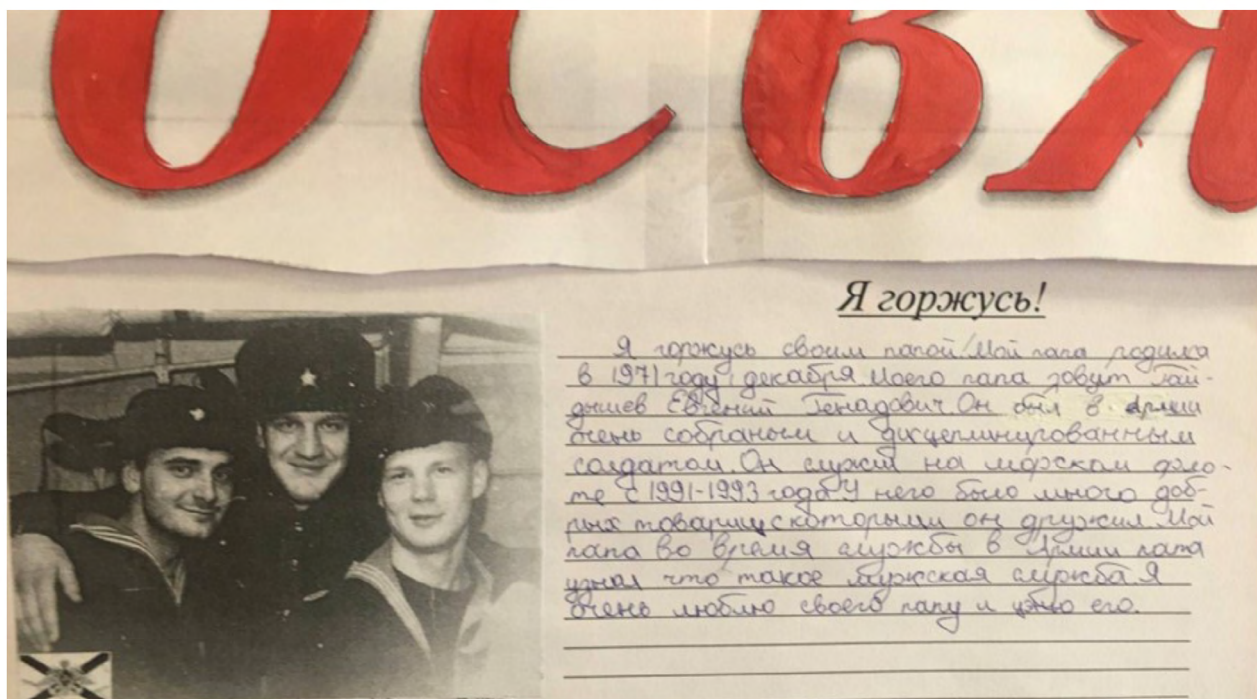 ОСВЯ
Я горжусь!
Я горжусь своим папой! Мой папа родился
в 1971 году, декабря. Моего папа зовут Гай-
дышев Евгений Генадович. Он был в Армии
очень собраным и дисцеплинированным
солдатом. Он служил на морском фло-
те с 1991-1993 года. У него было много доб-
рых товарищ с которыми он дружил. Мой
папа во время службы в Армии папа
узнал что такое мужская служба. Я
очень люблю своего папу и цэню его.